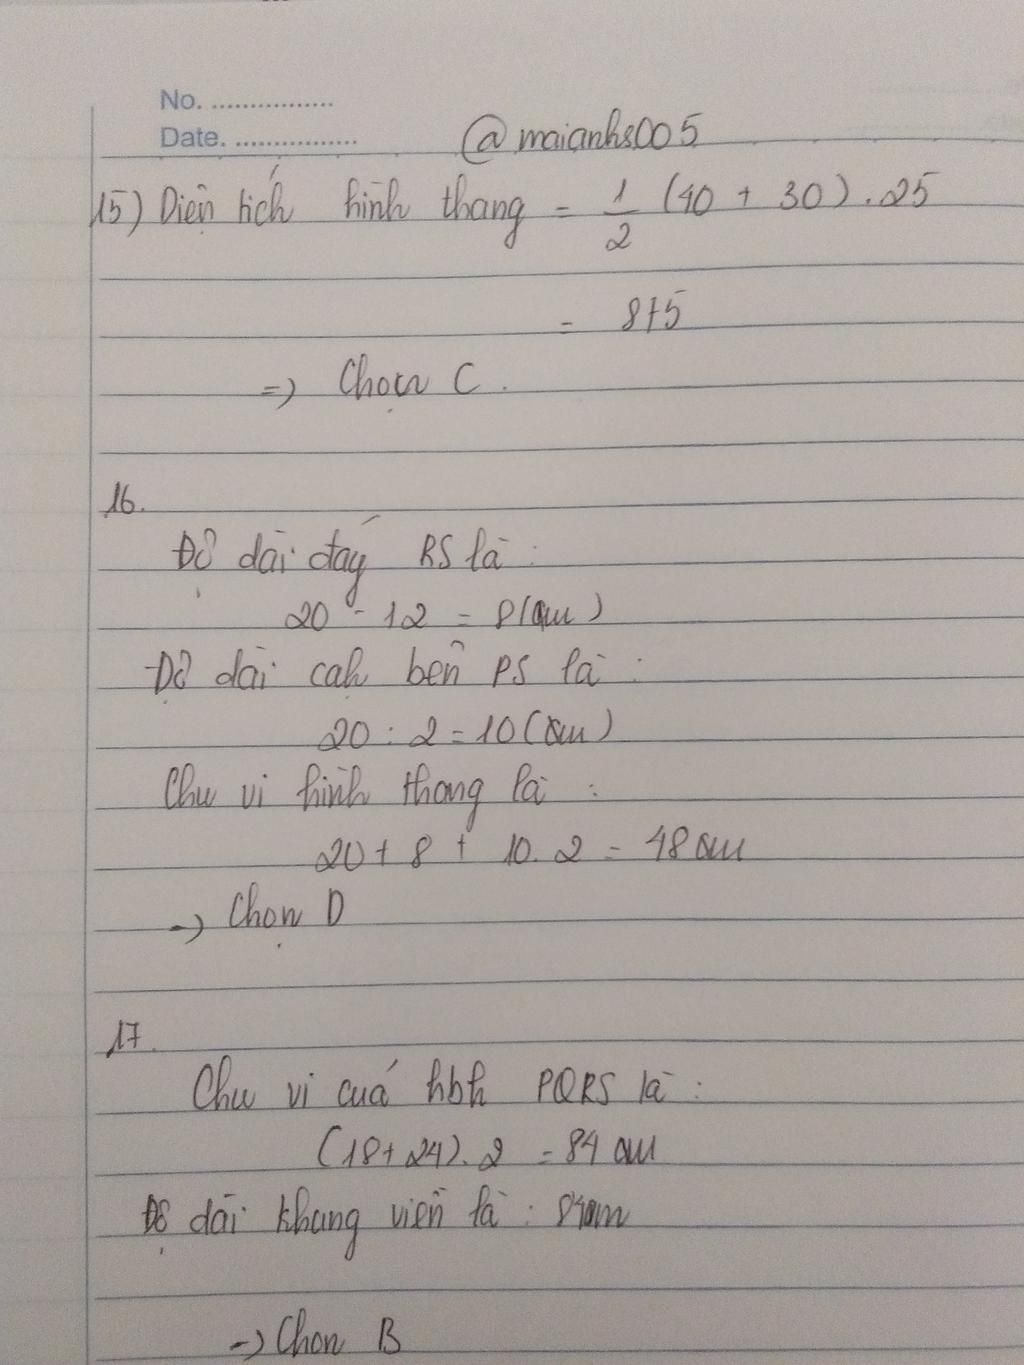 No. ................
Date. ................
@maianhs005
15) Diện tích hình thang = 1/2 (40 + 30) . 25
= 875
=> Chọn C.
16.
Độ dài đáy RS là :
20 - 12 = 8 (cm)
Độ dài cạh bên PS là :
20 : 2 = 10 (cm)
Chu vi hình thang là :
20 + 8 + 10. 2 = 48 cm
-> Chọn D
17.
Chu vi cuả hbh PQRS là :
(18 + 24). 2 = 84 cm
Độ dài khung viền là : 84cm
-> Chon B